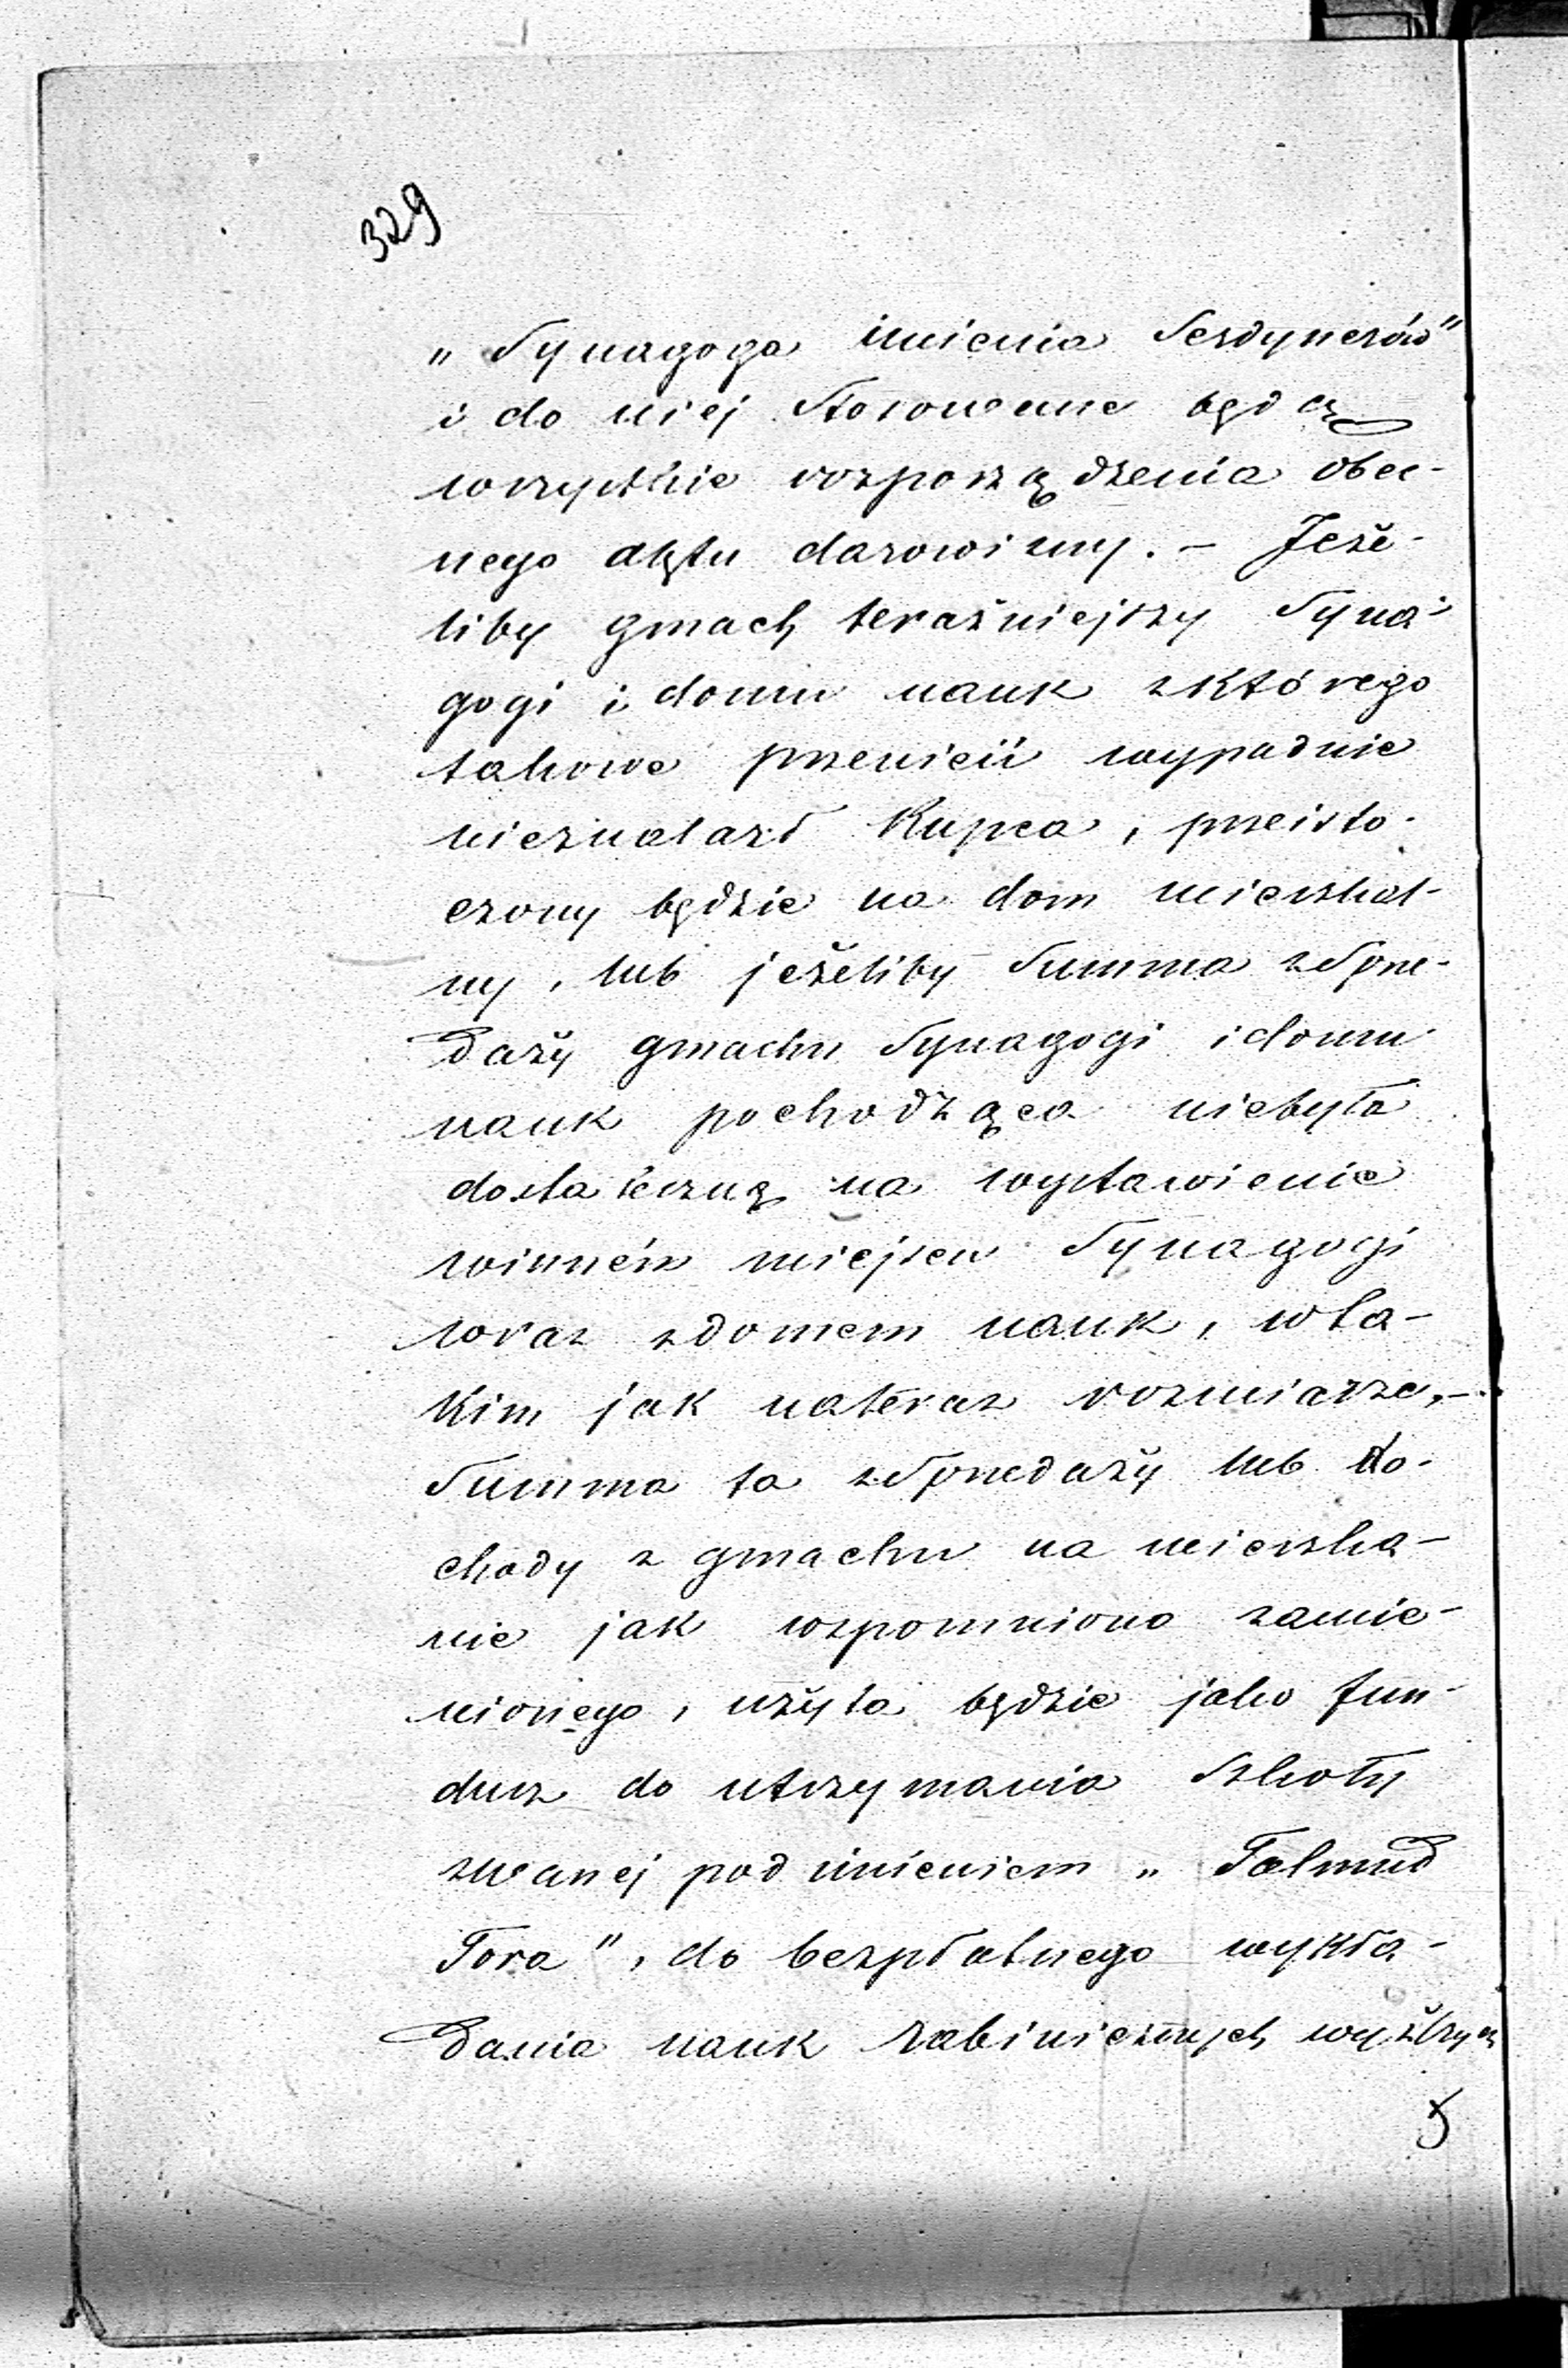 329
„Synagoga imienia Serdynerów"
i do niej stosowane będą
wszystkie rozporządzenia obec-
nego aktu darowizny. - Jeże-
liby gmach teraźniejszy Syna-
gogi i domu nauk z którego
takowe przenieść wypadnie
nieznalazł Kupca, przeisto-
czony będzie na dom mieszkal-
ny, lub jeżeliby Summa zSprze-
daży gmachu Synagogi i domu
nauk pochodząca niebyła
dostateczną na wystawienie
winném miejscu Synagogi
wraz zdomem nauk, wta-
kim jak nateraz rozmiarze, -
Summa ta zSprzedaży lub do-
chody z gmachu na mieszka-
nie jak wspomniono zamie-
nionego, użyta będzie jako fun-
dusz do utrzymania Szkoły
zwanej pod imieniem „Talmud
Tora", do bezpłatnego wykła-
dania nauk rabinicznych wyższych
5